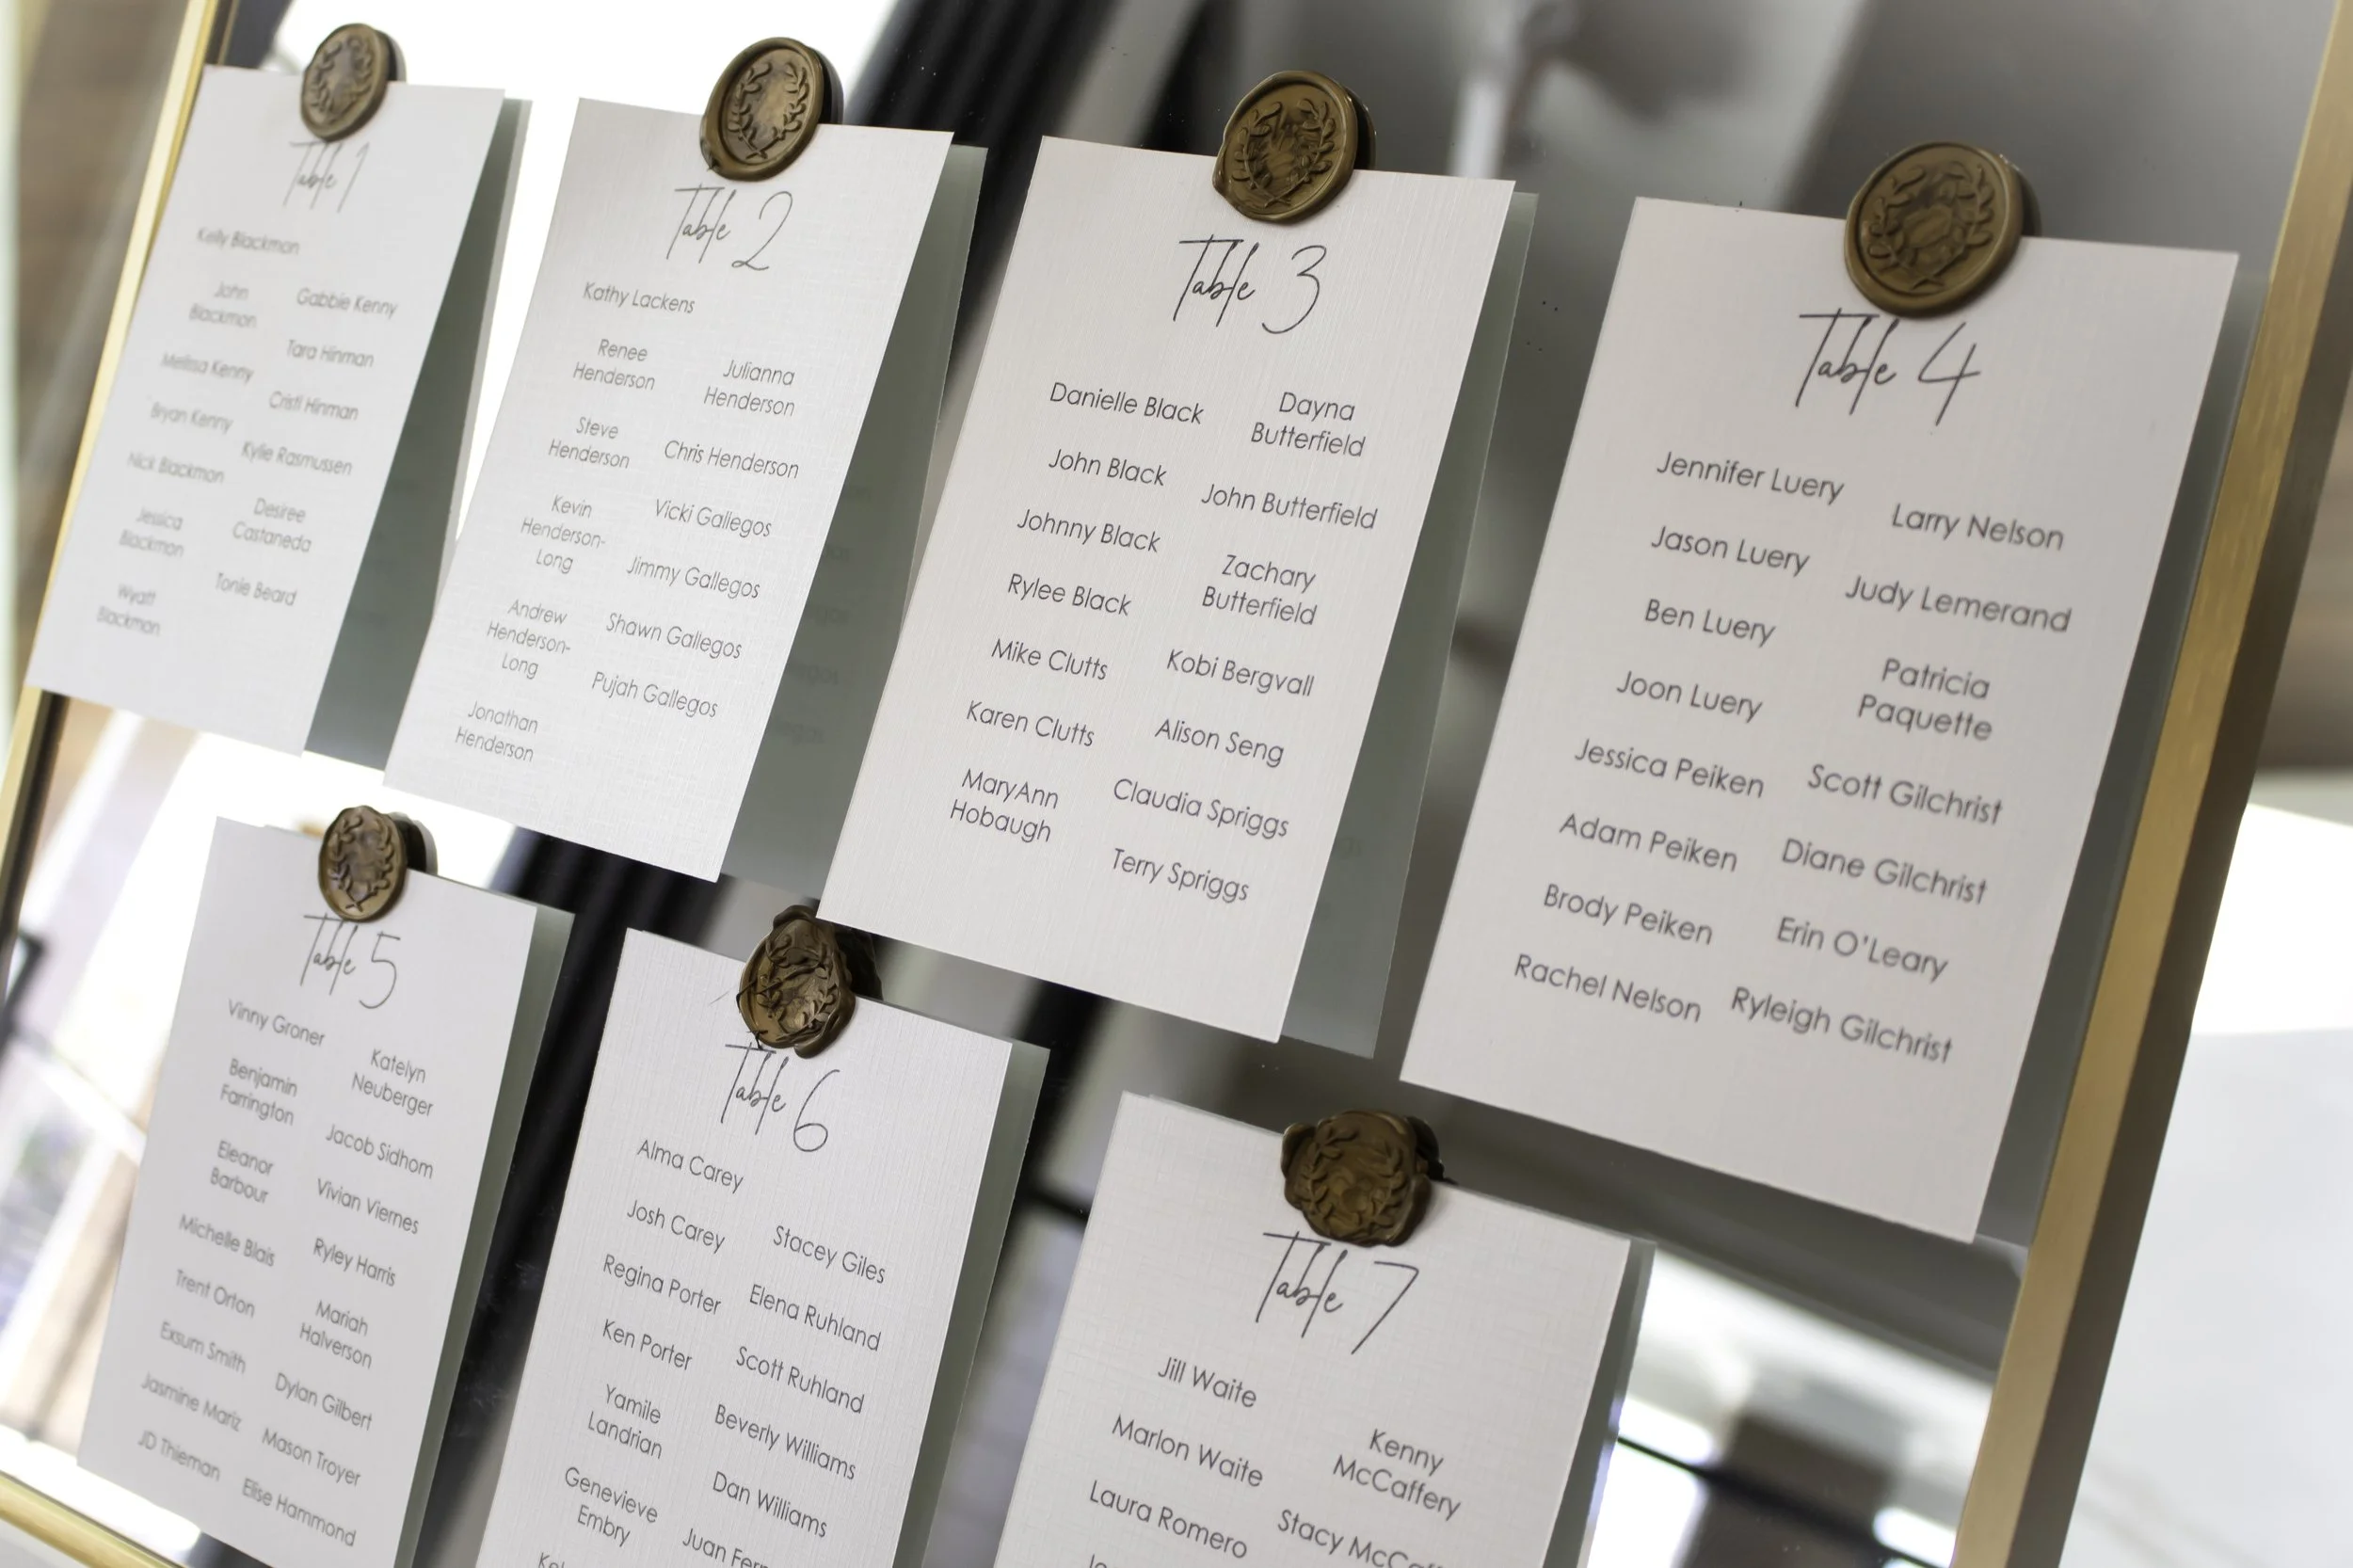 Table 1
Kelly Blackmon
John
Blackmon
Melissa Kenny
Bryan Kenny
Nick Blackmon
Jessica
Blackmon
Wyatt
Blackmon
Gabbie Kenny
Tara Hinman
Cristi Hinman
Kylie Rasmussen
Desiree
Castaneda
Tonie Beard
Table 2
Kathy Lackens
Renee
Henderson
Steve
Henderson
Kevin
Henderson-
Long
Andrew
Henderson-
Long
Jonathan
Henderson
Julianna
Henderson
Chris Henderson
Vicki Gallegos
Jimmy Gallegos
Shawn Gallegos
Pujah Gallegos
Table 3
Danielle Black
John Black
Johnny Black
Rylee Black
Mike Clutts
Karen Clutts
MaryAnn
Hobaugh
Dayna
Butterfield
John Butterfield
Zachary
Butterfield
Kobi Bergvall
Alison Seng
Claudia Spriggs
Terry Spriggs
Table 4
Jennifer Luery
Jason Luery
Ben Luery
Joon Luery
Jessica Peiken
Adam Peiken
Brody Peiken
Rachel Nelson
Larry Nelson
Judy Lemerand
Patricia
Paquette
Scott Gilchrist
Diane Gilchrist
Erin O'Leary
Ryleigh Gilchrist
Table 5
Vinny Groner
Benjamin
Farrington
Eleanor
Barbour
Michelle Blais
Trent Orton
Exsum Smith
Jasmine Mariz
JD Thieman
Katelyn
Neuberger
Jacob Sidhom
Vivian Viernes
Ryley Harris
Mariah
Halverson
Dylan Gilbert
Mason Troyer
Elise Hammond
Table 6
Alma Carey
Josh Carey
Regina Porter
Ken Porter
Yamile
Landrian
Genevieve
Embry
Stacey Giles
Elena Ruhland
Scott Ruhland
Beverly Williams
Dan Williams
Juan
Table 7
Jill Waite
Marlon Waite
Laura Romero
Kenny
McCaffery
Stacy